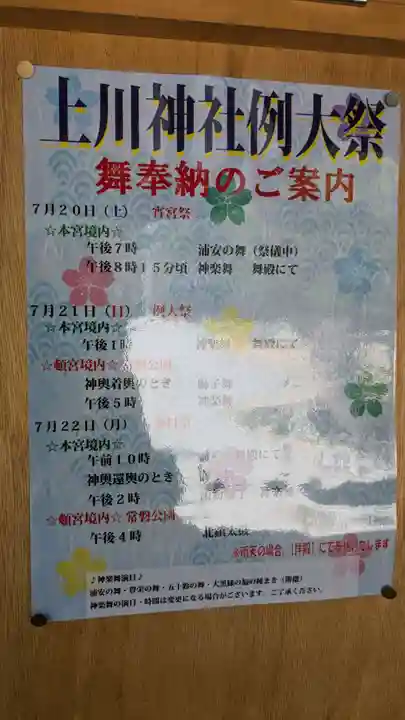 上川神社例大祭
舞奉納のご案内
7月20日(土) 宵宮祭
☆本宮境内☆
午後7時 浦安の舞(祭儀中)
午後8時15分頃 神楽舞 舞殿にて
7月21日(日) 例大祭
☆本宮境内☆
午後1時 神楽舞 舞殿にて
☆頓宮境内☆ 常磐公園
神輿着輿のとき 獅子舞
午後5時 神楽舞
7月22日(月)
☆本宮境内☆
午前10時 舞殿にて
神輿還輿のとき
午後2時
☆頓宮境内☆ 常磐公園
午後4時 北鎮太鼓
※雨天の場合、【拝殿】にて奉納いたします
♪神楽舞演目♪
浦安の舞・豊栄の舞・五十鈴の舞・大黒様の福の種まき(開運)
神楽舞の演目・時間は変更になる場合がございます。ご了承ください。